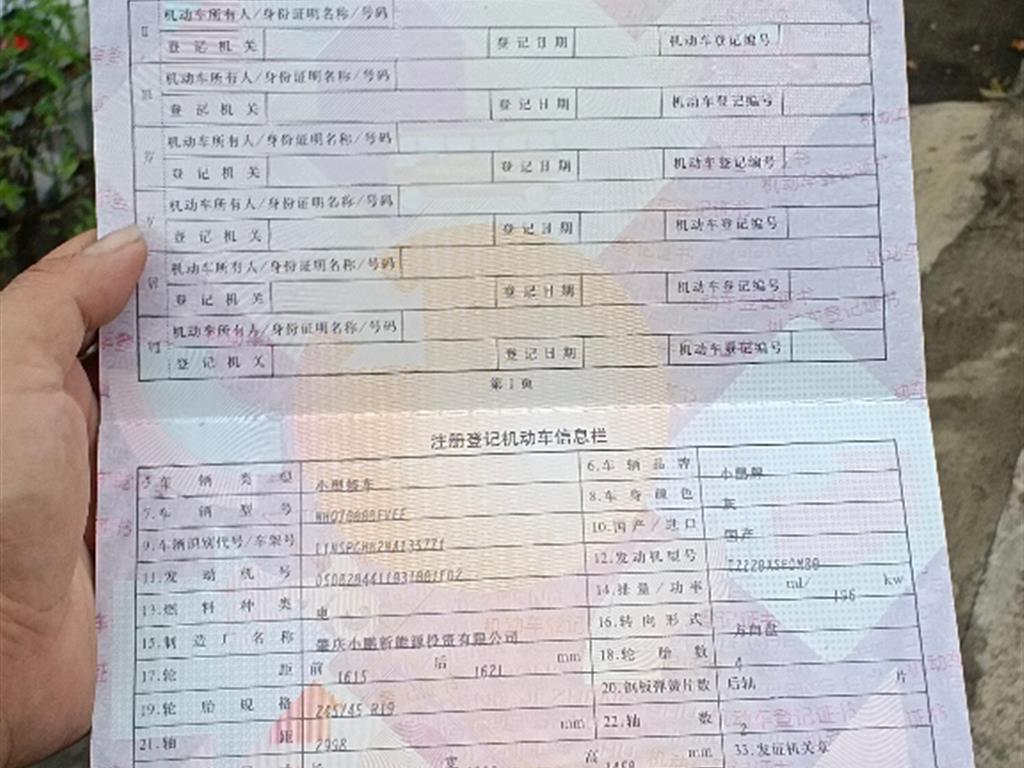 Ⅱ 机动车所有人/身份证明名称/号码
登记机关 登记日期 机动车登记编号
Ⅲ 机动车所有人/身份证明名称/号码
登记机关 登记日期 机动车登记编号
Ⅳ 机动车所有人/身份证明名称/号码
登记机关 登记日期 机动车登记编号
Ⅴ 机动车所有人/身份证明名称/号码
登记机关 登记日期 机动车登记编号
Ⅵ 机动车所有人/身份证明名称/号码
登记机关 登记日期 机动车登记编号
Ⅶ 机动车所有人/身份证明名称/号码
登记机关 登记日期 机动车登记编号
第1页
注册登记机动车信息栏
5.车辆类型 小型轿车 6.车辆品牌 小鹏牌
7.车辆型号 8.车身颜色 灰
9.车辆识别代号/车架号 10.国产/进口 国产
11.发动机号 12.发动机型号
13.燃料种类 电 14.排量/功率 ml/ 196 kw
15.制造厂名称 肇庆小鹏新能源投资有限公司 16.转向形式 方向盘
17.轮距 前 1615 后 1621 mm 18.轮胎数 4
19.轮胎规格 245/45 R19 20.钢板弹簧片数 后轴 片
21.轴距 2998 mm 22.轴数 2
宽 高 mm 33.发证机关章